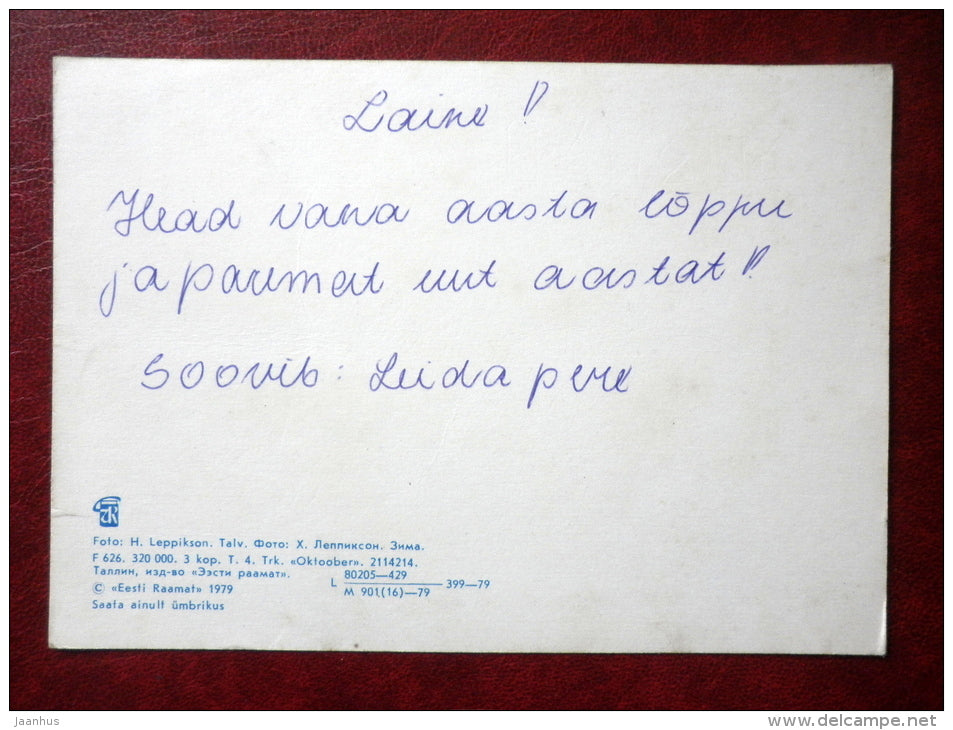 Laine!
Head vana aasta lõppu
ja paremat uut aastat!
Soovib: Leida pere
Foto: H. Leppikson. Talv. Фото: Х. Леппиксон. Зима.
F 626. 320 000. 3 kop. T. 4. Trk. «Oktoober». 2114214.
Таллин, изд-во «Ээсти раамат».
© «Eesti Raamat» 1979
L 80205—429
M 901(16)—79
399—79
Saata ainult ümbrikus
jaanhus
www.delcampe.net